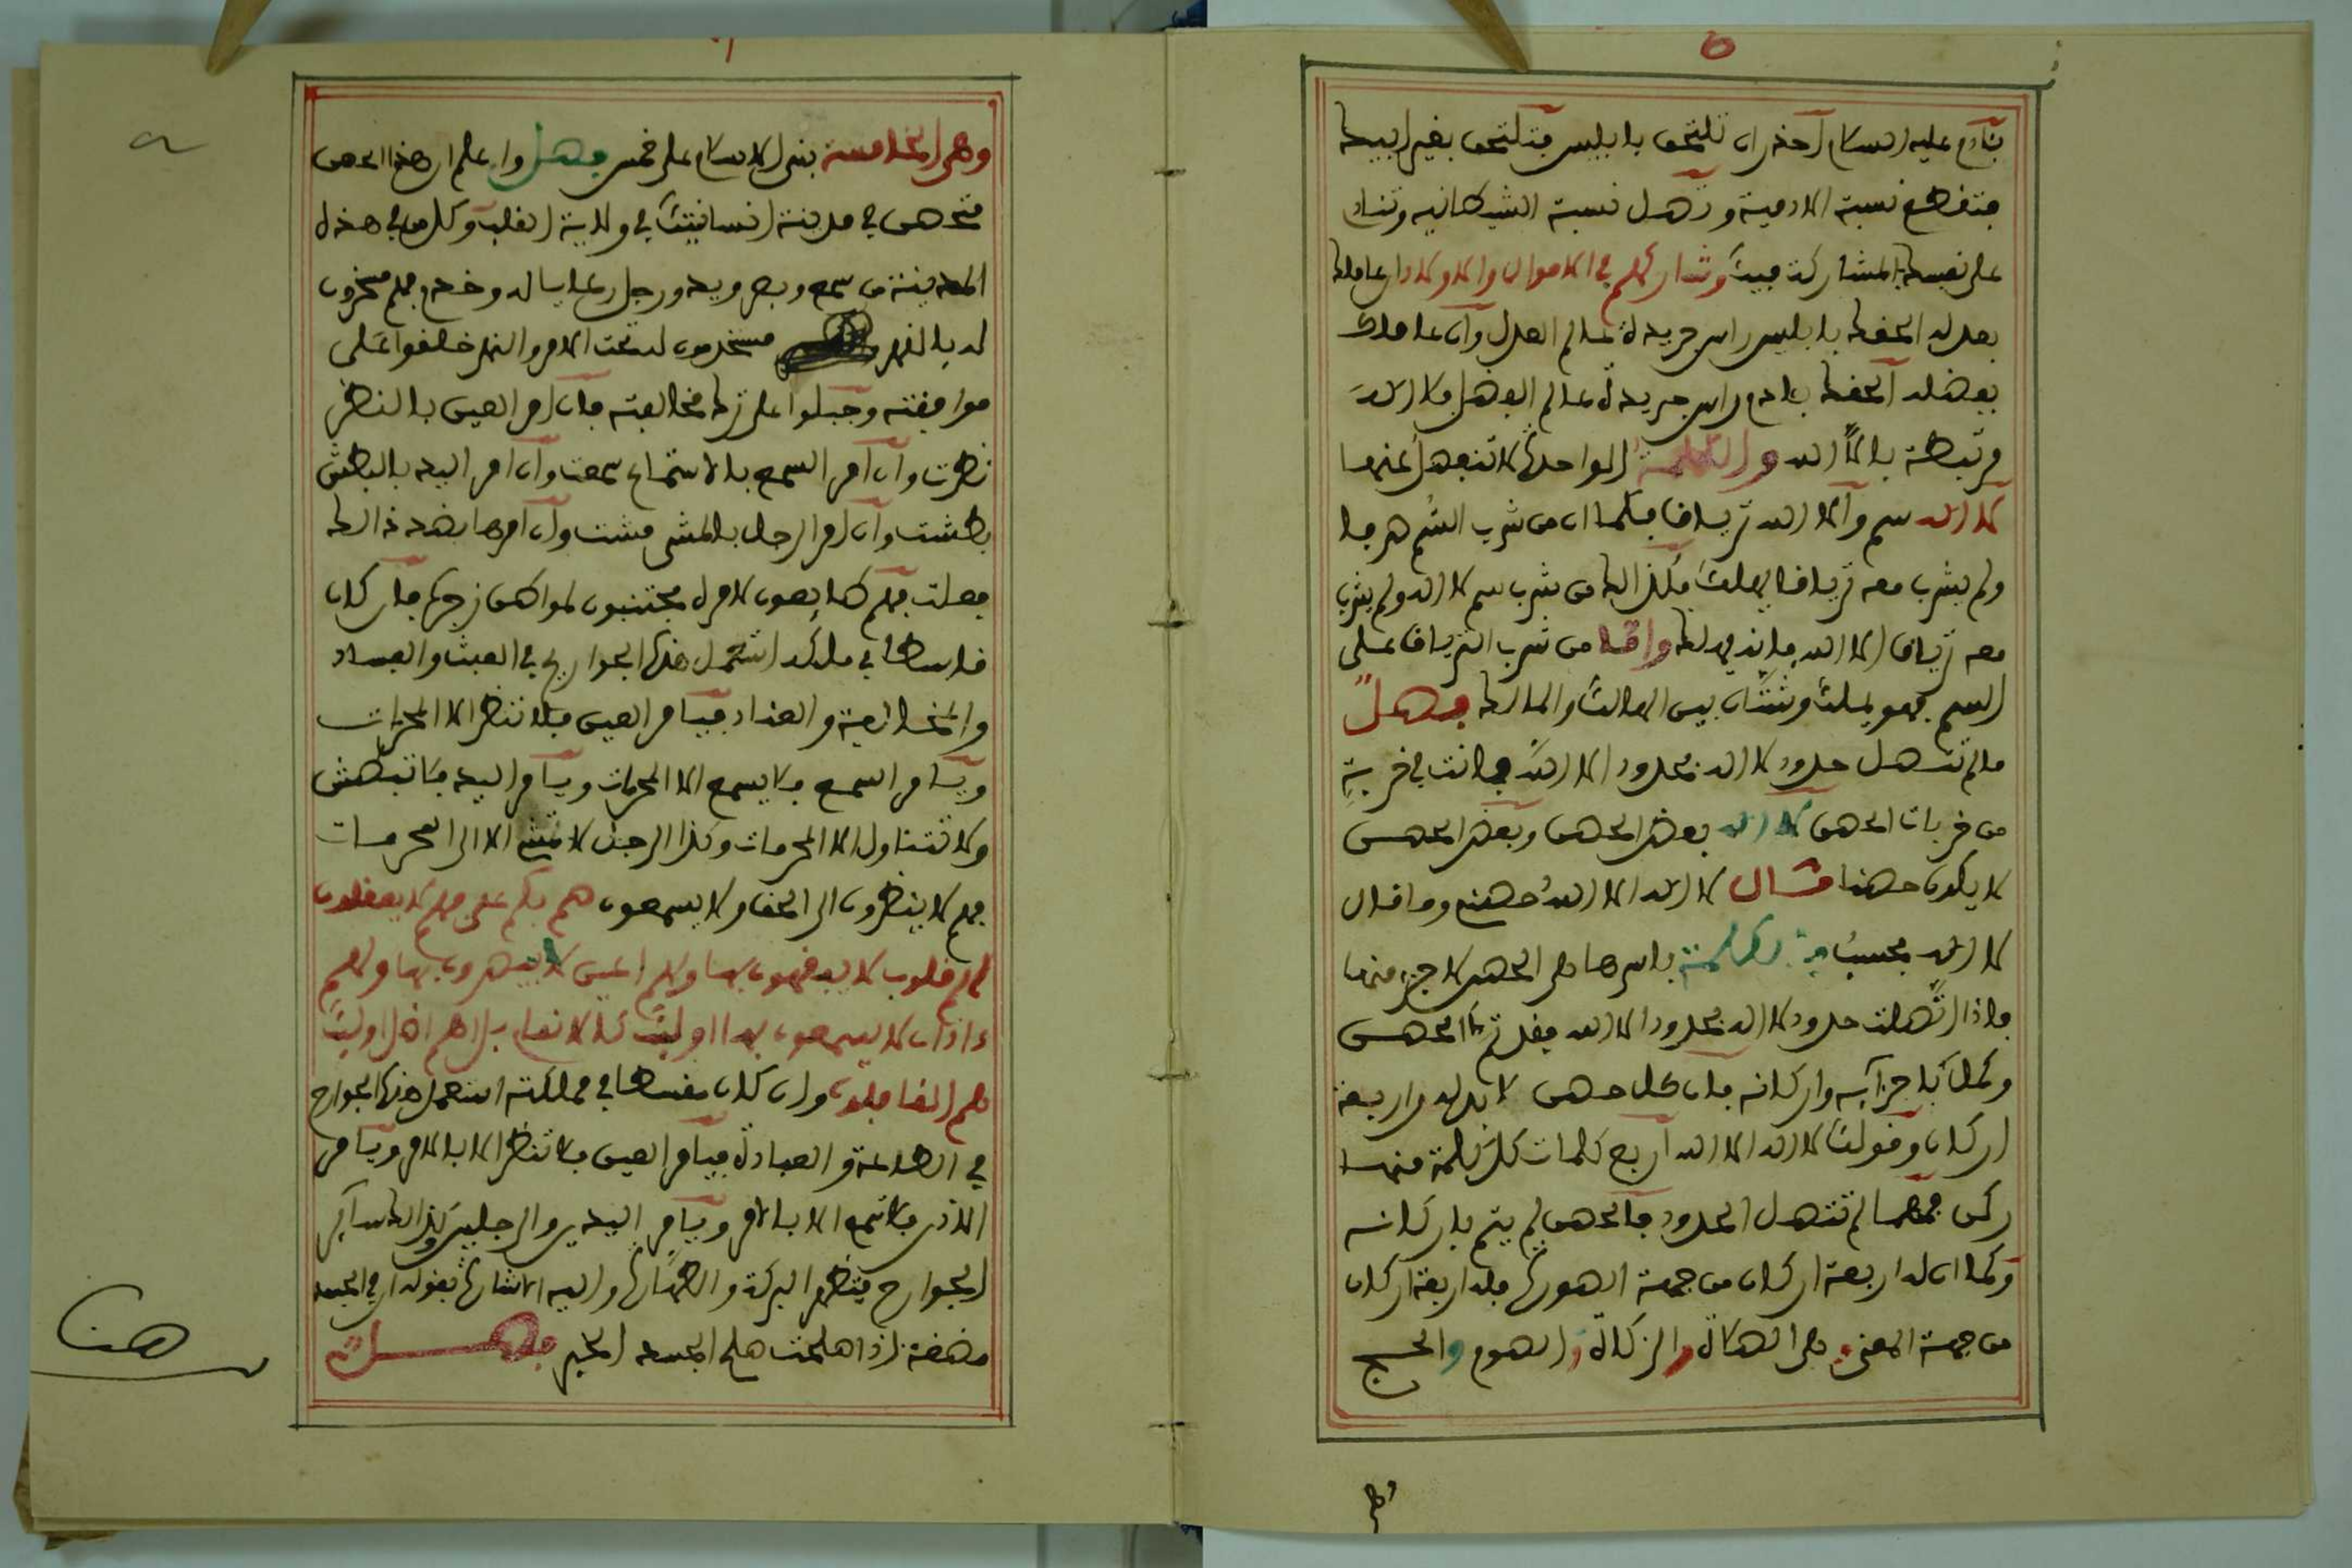 بآدم عليه السلام احذر ان تلتحق بابليس فتلتحق بغير ابيك
فتقطع نسبة الادمية وتصل نسبة الشيطانيه وتناد
على نفسك بالمشاركة فيك وشاركهم في الاموال والاولاد ان عاملك
بعدله الحقك بابليس راس جريدة عالم العدل وان عاملك
بفضله الحقك بادم راس جريدة عالم الفضل لا اله
مرتبطة بالا الله والكلمة الواحدة لا تنفصل عنهما
لا اله سم والا الله ترياق فكما ان من شرب السم صرفا
ولم يشرب معه ترياقا هلك فكذالك من شرب سم لا اله ولم يشرب
معه ترياق الا الله فانه يهلك واما من شرب الترياق على
السم فهو يملك وشتان بين الهالك والمالك فصل
مالم تتصل حدود لا اله بحدود الا الله فانت في خربة
من خربات الحصن لا اله بعض الحصن وبعض الحصن
لا يكون حصنا مثال لا اله الا الله حصني وما قال
لا اله فحسب فالكلمة باسرها هي الحصن لا جزء منها
فاذا اتصلت حدود لا اله بحدود الا الله فقد تم الحصن
وكمل باجزآيه واركانه فان كل حصن لا بد له من اربعة
اركان وقولك لا اله الا الله اربع كلمات كل كلمة منها
ركن فمهما لم تتصل الحدود فالحصن لم يتم باركانه
وكما ان له اربعة اركان من جهة الصورة فله اربعة اركان
من جهة المعنى وهى الصلاة والزكاة والصوم والحج
وهى
وهى الخامسة بني الاسلام على خمس فصل واعلم ان هذا الحصن
متحصن في مدينة انسانيتك في ولاية القلب وكل من في هذه
المدينة من سمع وبصر ويد ورجل رعايا له وخدم فهم مسخرون
له بالقهر مستخدمون له تحت الامر والنهر خلقوا على
موافقته وجبلوا على ترك مخالفته فان امر العين بالنظر
نظرت وان امر السمع بالاستماع سمعت وان امر اليد بالبطش
بطشت وان امر الرجل بالمشي مشت وان امرها بضد ذالك
فعلت فهم طايعون لامره مجتنبون لمواطن زجره فان كان
فاسدا في ملكه استعمل هذه الجوارح في العبث والفساد
والمخالفة والعناد فيامر العين فلا تنظر الا المحرمات
ويامر السمع فلا يسمع الا المحرمات ويامر اليد فلا تبطش
ولا تتناول الا المحرمات وكذا الرجل لا تمش الا الى المحرمات
فهم لا ينظرون الى الحق ولا يسمعون صم بكم عمي فهم لا يعقلون
لهم قلوب لا يفقهون بها ولهم اعين لا يبصرون بها ولهم
ءاذان لا يسمعون بها اوليك كالانعام بل هم اضل اوليك
هم الغافلون وان كان مقسطا في مملكته استعمل هذه الجوارح
في الطاعة والعبادة فيامر العين فلا تنظر الا بالامر ويامر
الاذن فلا تسمع الا بالامر ويامر اليدين والرجلين وكذالك ساير
الجوارح فتظهر البركة والطهارة واليه الاشارة بقوله ان في الجسد
مضغة اذا صلحت صلح الجسد الخبر فصل
هنا